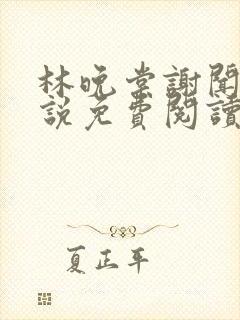 林晚棠謝聞
說免費閱讀
夏正平